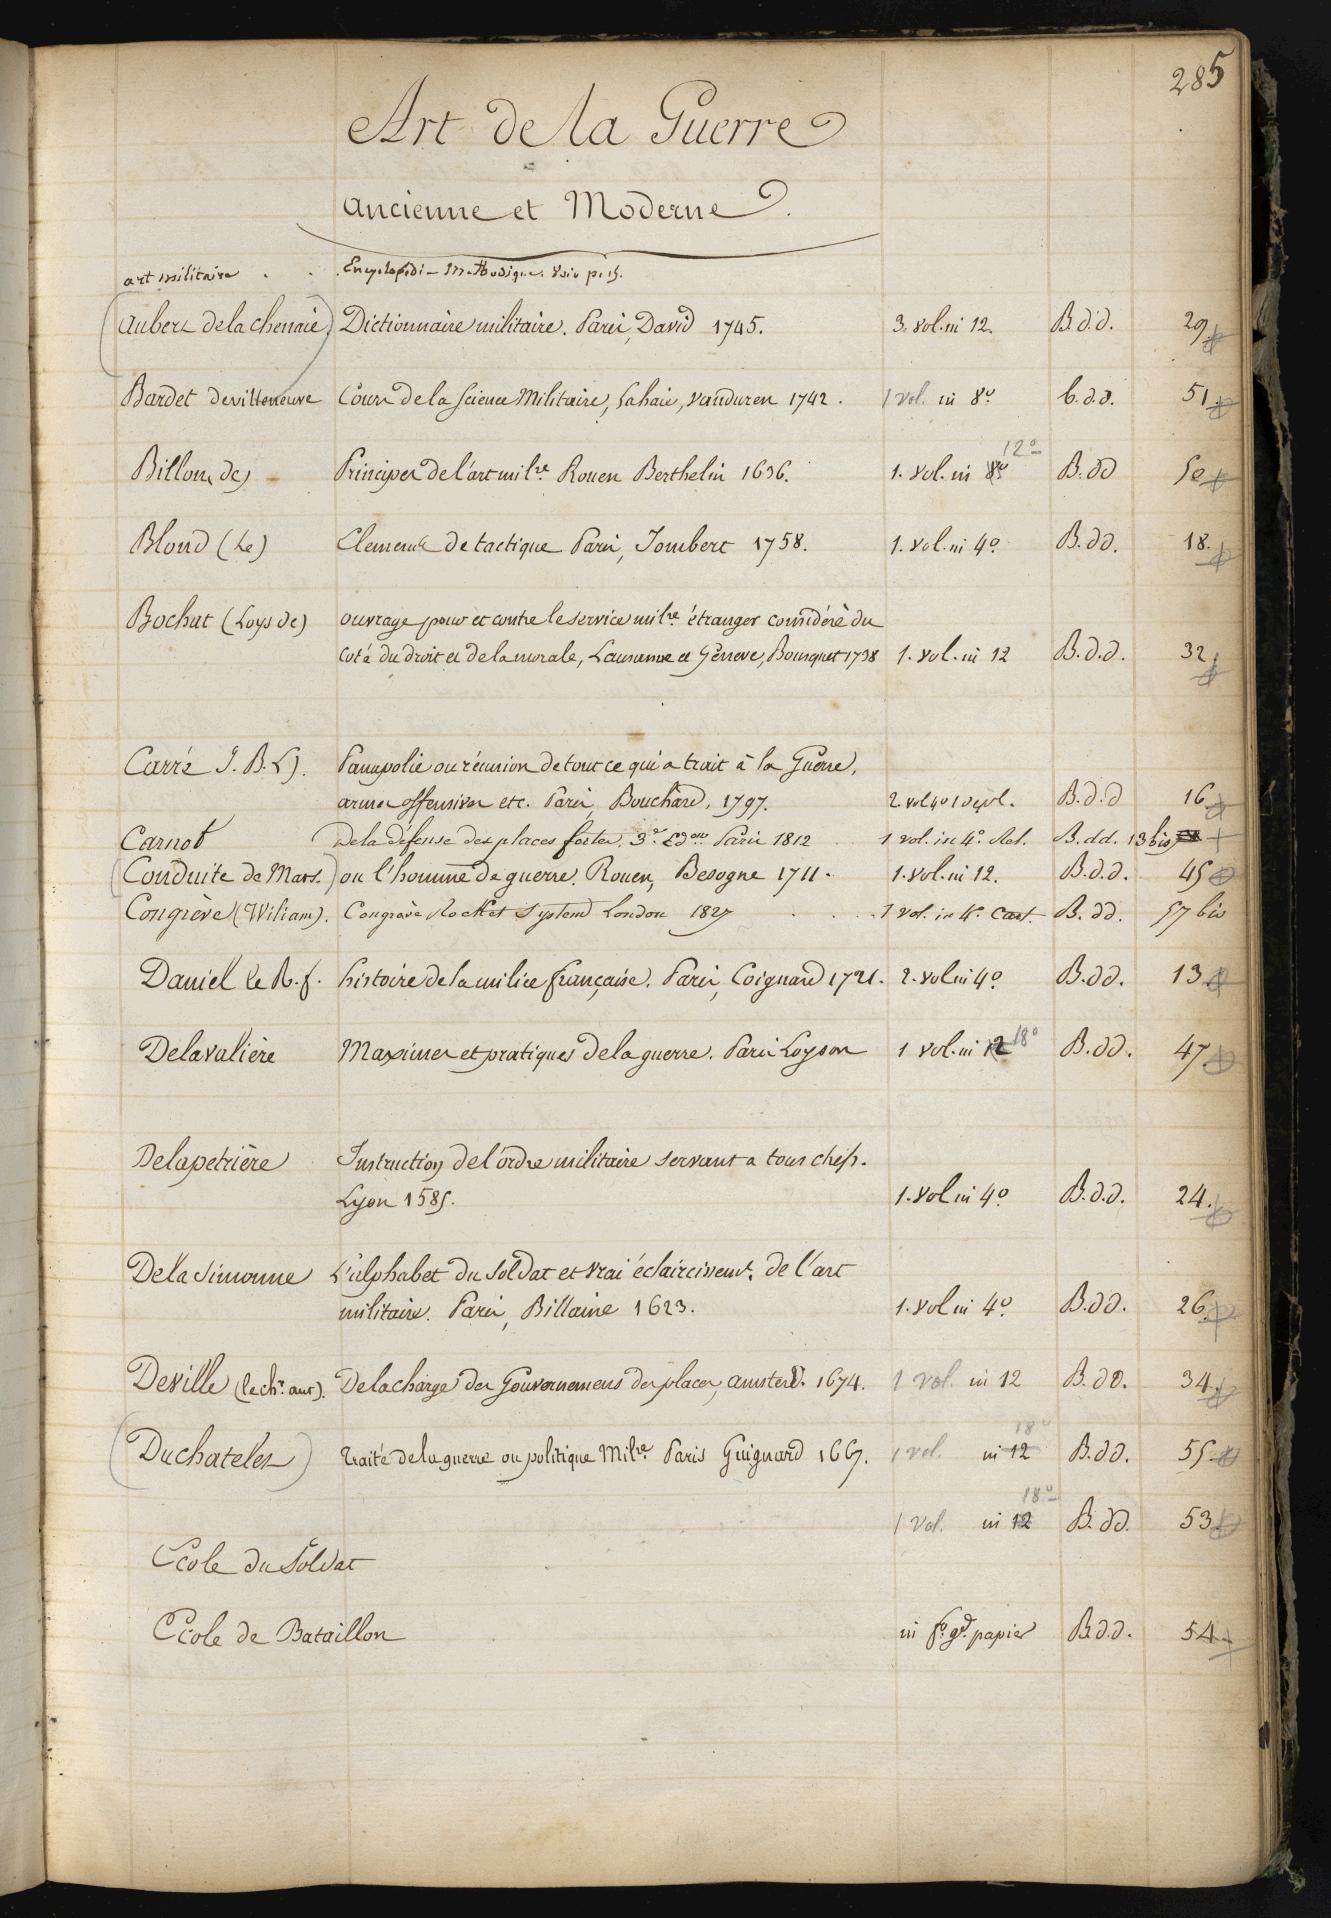 285
Art de la Guerre
ancienne et Moderne.
art militaire . . Encyclopédi- Méthodique. Voir p.
(Aubert de la chenaie) Dictionnaire militaire. Paris, David 1745. 3. vol. in 12. B.d.d. 29
Bardet devilleneuve Cours de la Science Militaire, Lahaie, vanduren 1742. 1 vol. in 8º b.d.d. 51.
12º
Billon, de) Principes de l'art milre. Rouen Berthelin 1636. 1. vol. in 8º B.dd 50
Blond (Le) Elements de tactique Paris, Jombert 1758. 1. vol. in 4º. B.dd. 18.
Bochat (Loys de) ouvrage pour et contre le service milre. étranger considéré du
coté du droit et de la morale, Lausanne et Géneve, Bousquet 1738 1. vol. in 12 B.d.d. 32
Carré J. B. L). Panoplie ou réunion de tout ce qui a trait à la Guerre,
armes offensives etc. Paris, Bouchard, 1797. 2. vol 4º B.d.d 16
Carnot De la défense des places fortes. 3e. Edon Paris 1812 1 vol. in 4º. Rel. B.dd. 13 bis
(Conduite de Mars.) ou l'homme de guerre. Rouen, Besogne 1711. 1. vol. in 12. B.d.d. 45
Congrève (Wiliam). Congrave Rocket System London 1827 . . . . 1 vol. in 4º. Cart. B.dd. 57 bis
Daniel Le R. f. histoire de la milice française. Paris, Coignard 1721. 2. vol in 4º B.dd. 13
Delavalière Maximes et pratiques de la guerre. Paris Loyson 1 vol. in 12 18º B.dd. 47.
Delapetrière Instruction de l'ordre militaire servant a tous chefs.
Lyon 1585. 1. vol in 4º B.d.d. 24.
De la Simonne L'alphabet du Soldat et vrai éclaircissemt. de l'art
militaire. Paris, Billaine 1623. 1. vol in 4º. B.dd. 26
Deville (le chr. ant). De la charge des Gouvernemens des places, amsterd. 1674. 1 vol. in 12 B.dd. 34.
18º
(Duchatelet) traité de la guerre ou politique Milre. Paris Guignard 1667. 1 vol. in 12 B.dd. 55
18º
1 vol. in 12 B.dd. 53.
Ecole du Soldat
Ecole de Bataillon in fº. gd. papier B.d.d. 54